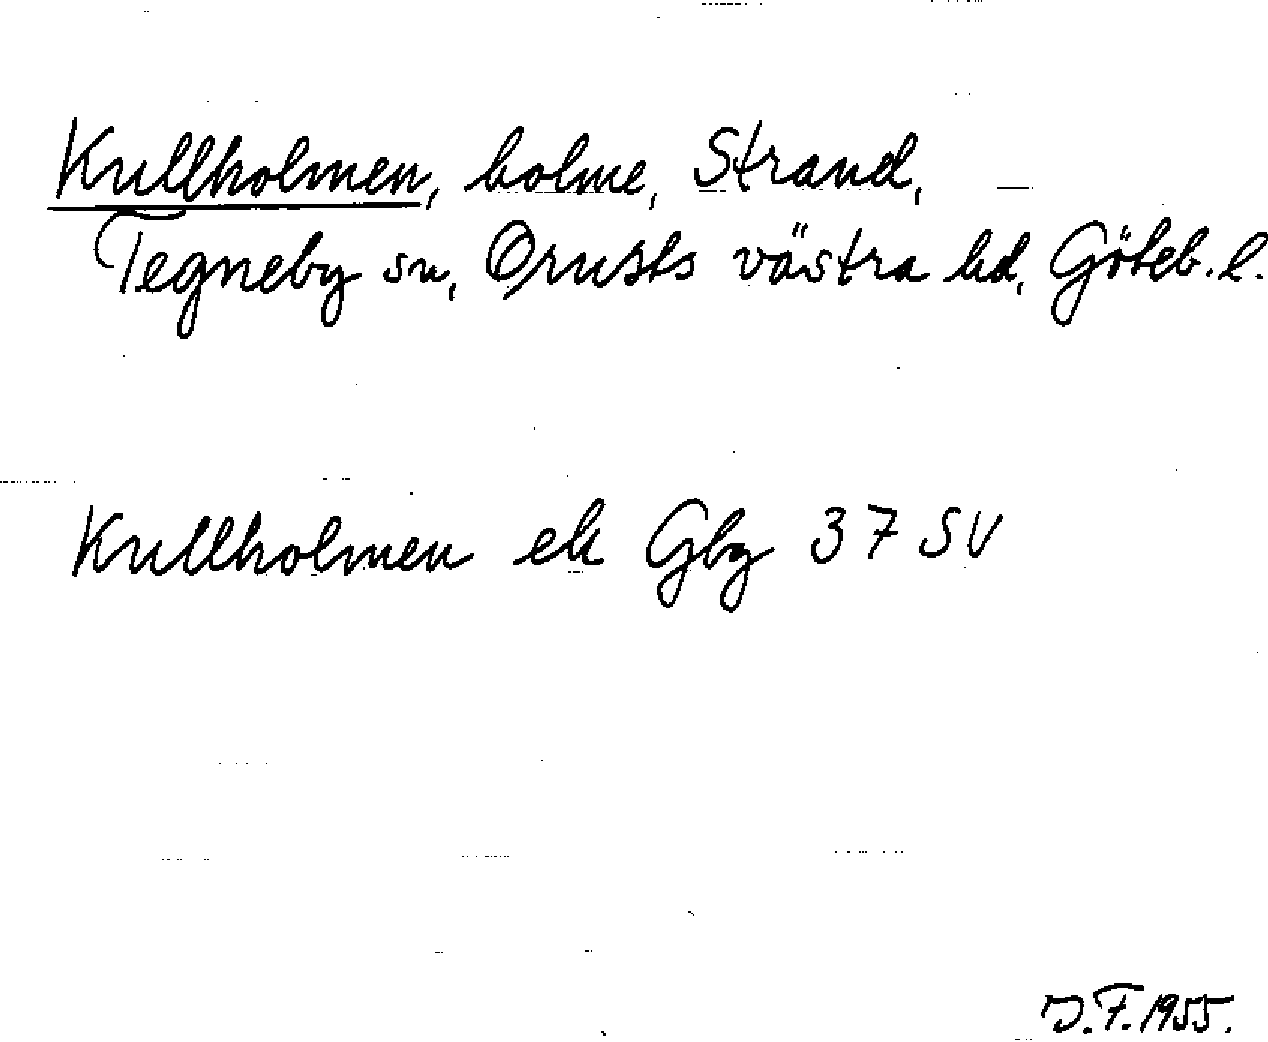 Kullholmen, holme, Strand,
Tegneby sn, Orusts västra hd, Göteb. l.
Kullholmen ek Gbg 37 SV
J.F. 1955.